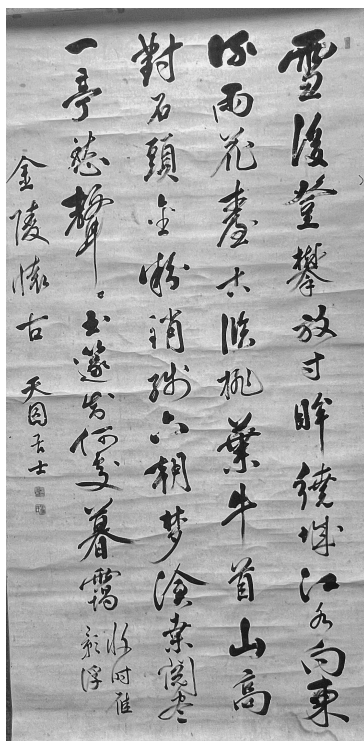 雪後登攀放寸眸繞城江水向東
流雨花臺古臨桃葉牛首山高
對石頭金粉銷殘六朝夢滄桑閱盡
一亭愁聲々玉篴知何處暮靄
時雁
影浮
金陵懷古 天囚居士